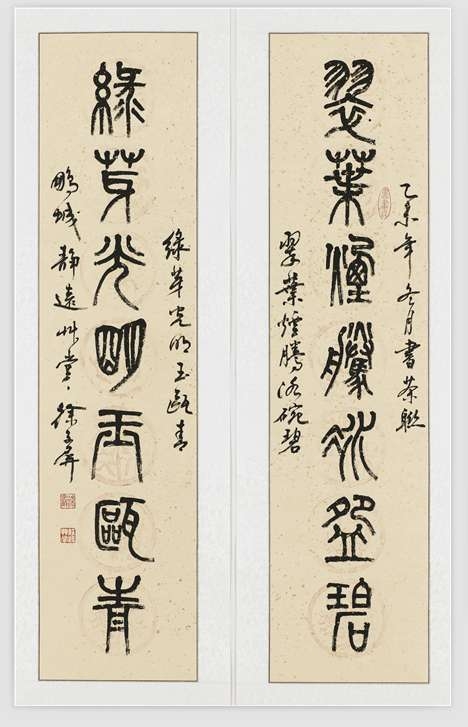 乙未年冬月書茶聯
翠葉煙騰冰盌碧
翠葉煙騰冰碗碧
綠芽光明玉甌青
綠芽光明玉甌青
鵬城靜遠艸堂徐屏